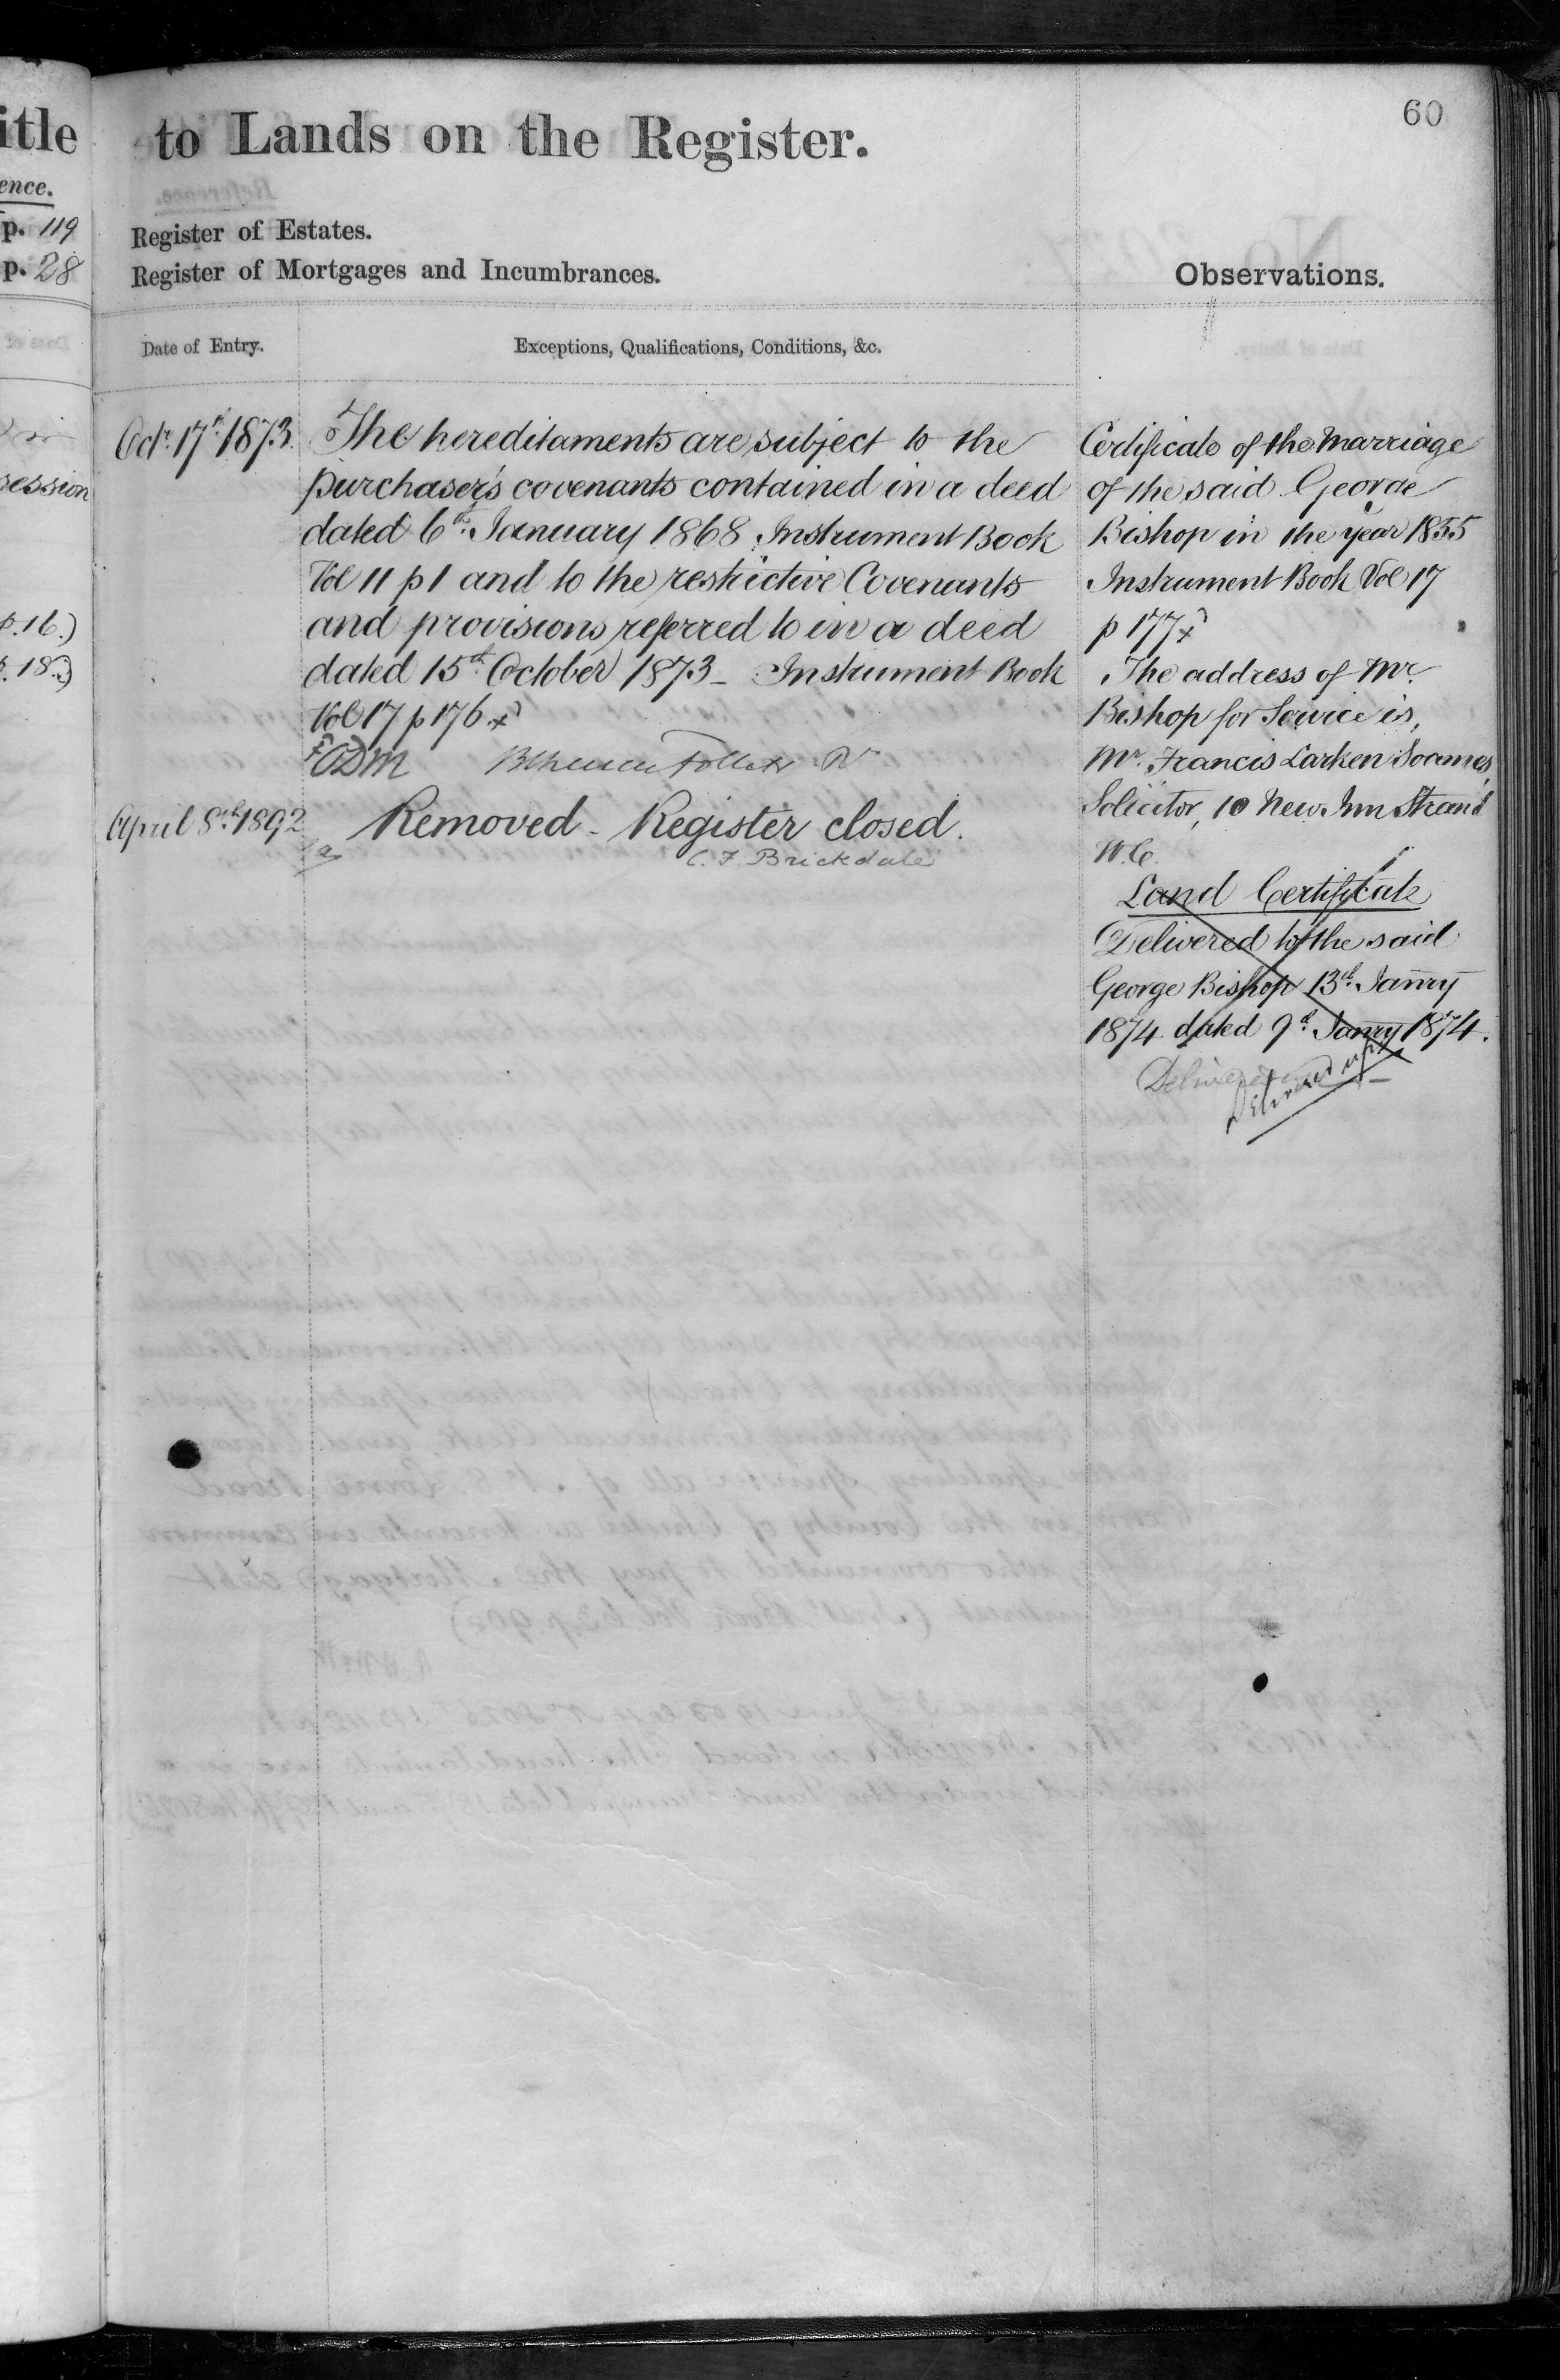 itle
ence.
p. 119
p. 28
session
p. 16.)
p. 18.)
60
to Lands on the Register.
Register of Estates.
Register of Mortgages and Incumbrances.
Observations.
Date of Entry.
Exceptions, Qualifications, Conditions, &c.
Octr. 17th 1873.
The hereditaments are subject to the
purchaser's covenants contained in a deed
dated 6th January 1868 Instrument Book
Vol 11 p 1 and to the restrictive Covenants
and provisions referred to in a deed
dated 15th October 1873 - Instrument Book
Vol 17 p 176 x
Follett
April 8th 1892
Removed - Register closed.
C. F. Brickdale
Certificate of the Marriage
of the said George
Bishop in the year 1855
Instrument Book Vol 17
p 177 x
The address of Mr.
Bishop for Service is,
Mr. Francis Larken Soames,
Solicitor, 10 New Inn Strand
W.C.
Land Certificate
Delivered to the said
George Bishop 13th Janry
1874 dated 9th Janry 1874.
Delivered up